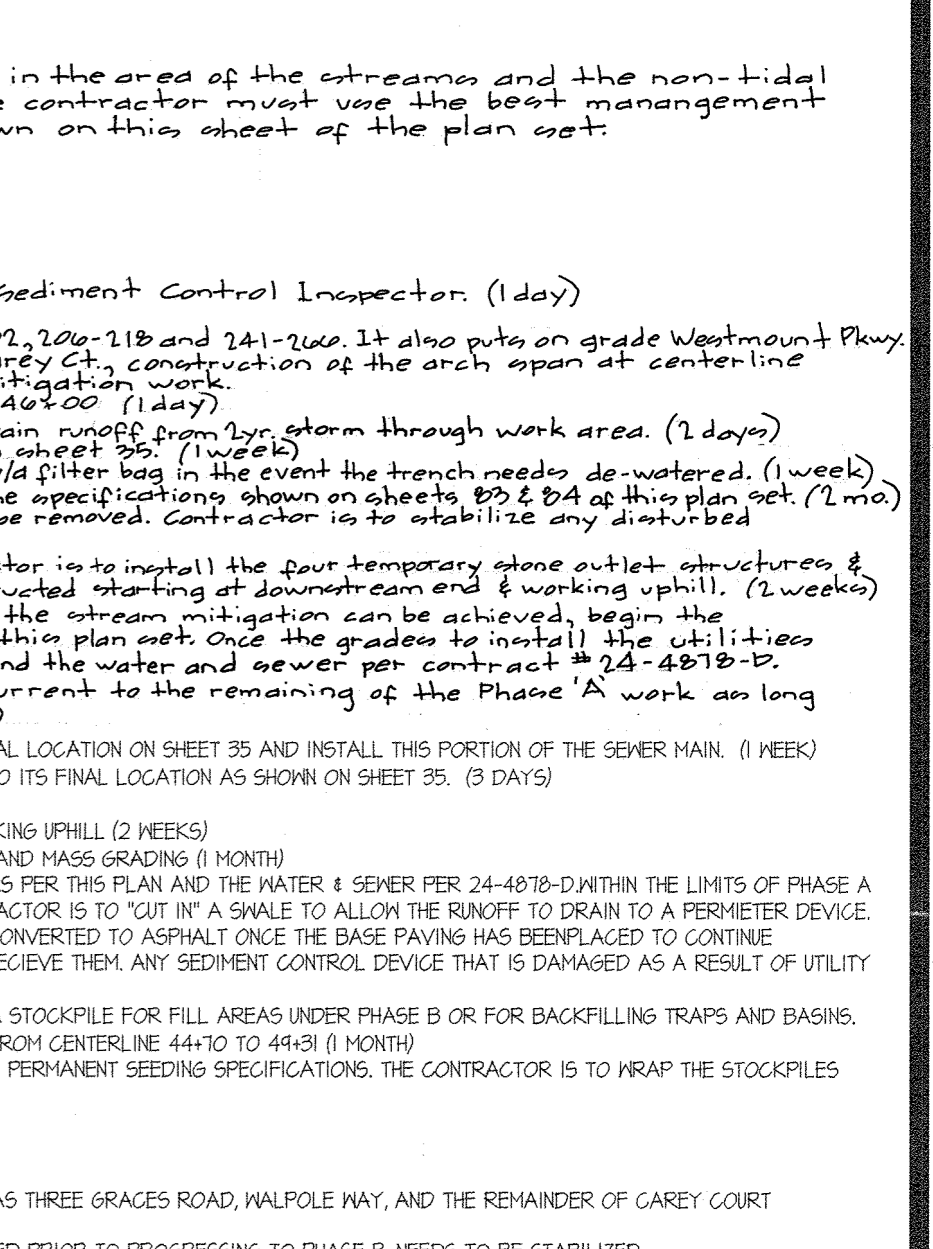 in the area of the streams and the non-tidal
contractor must use the best manangement
on this sheet of the plan set.
Sediment Control Inspector. (1 day)
2, 206-218 and 241-266. It also puts on grade Westmount Pkwy.
rey Ct., construction of the arch span at centerline
itigation work.
46+00 (1 day)
ain runoff from 2yr. storm through work area. (2 days)
sheet 35. (1 week)
/a filter bag in the event the trench needs de-watered. (1 week)
e specifications shown on sheets 83 & 84 of this plan set. (2 mo.)
be removed. Contractor is to stabilize any disturbed
tor is to install the four temporary stone outlet structures &
ucted starting at downstream end & working uphill. (2 weeks)
the stream mitigation can be achieved, begin the
this plan set. Once the grades to install the utilities
nd the water and sewer per contract # 24-4878-D.
urrent to the remaining of the Phase 'A' work as long
AL LOCATION ON SHEET 35 AND INSTALL THIS PORTION OF THE SEWER MAIN. (1 WEEK)
O ITS FINAL LOCATION AS SHOWN ON SHEET 35. (3 DAYS)
KING UPHILL (2 WEEKS)
AND MASS GRADING (1 MONTH)
S PER THIS PLAN AND THE WATER & SEWER PER 24-4878-D.WITHIN THE LIMITS OF PHASE A
ACTOR IS TO "CUT IN" A SWALE TO ALLOW THE RUNOFF TO DRAIN TO A PERMIETER DEVICE.
ONVERTED TO ASPHALT ONCE THE BASE PAVING HAS BEENPLACED TO CONTINUE
ECIEVE THEM. ANY SEDIMENT CONTROL DEVICE THAT IS DAMAGED AS A RESULT OF UTILITY
A STOCKPILE FOR FILL AREAS UNDER PHASE B OR FOR BACKFILLING TRAPS AND BASINS.
ROM CENTERLINE 44+70 TO 49+31 (1 MONTH)
PERMANENT SEEDING SPECIFICATIONS. THE CONTRACTOR IS TO WRAP THE STOCKPILES
AS THREE GRACES ROAD, WALPOLE WAY, AND THE REMAINDER OF CAREY COURT
ED PRIOR TO PROGRESSING TO PHASE B NEEDS TO BE STABILIZED